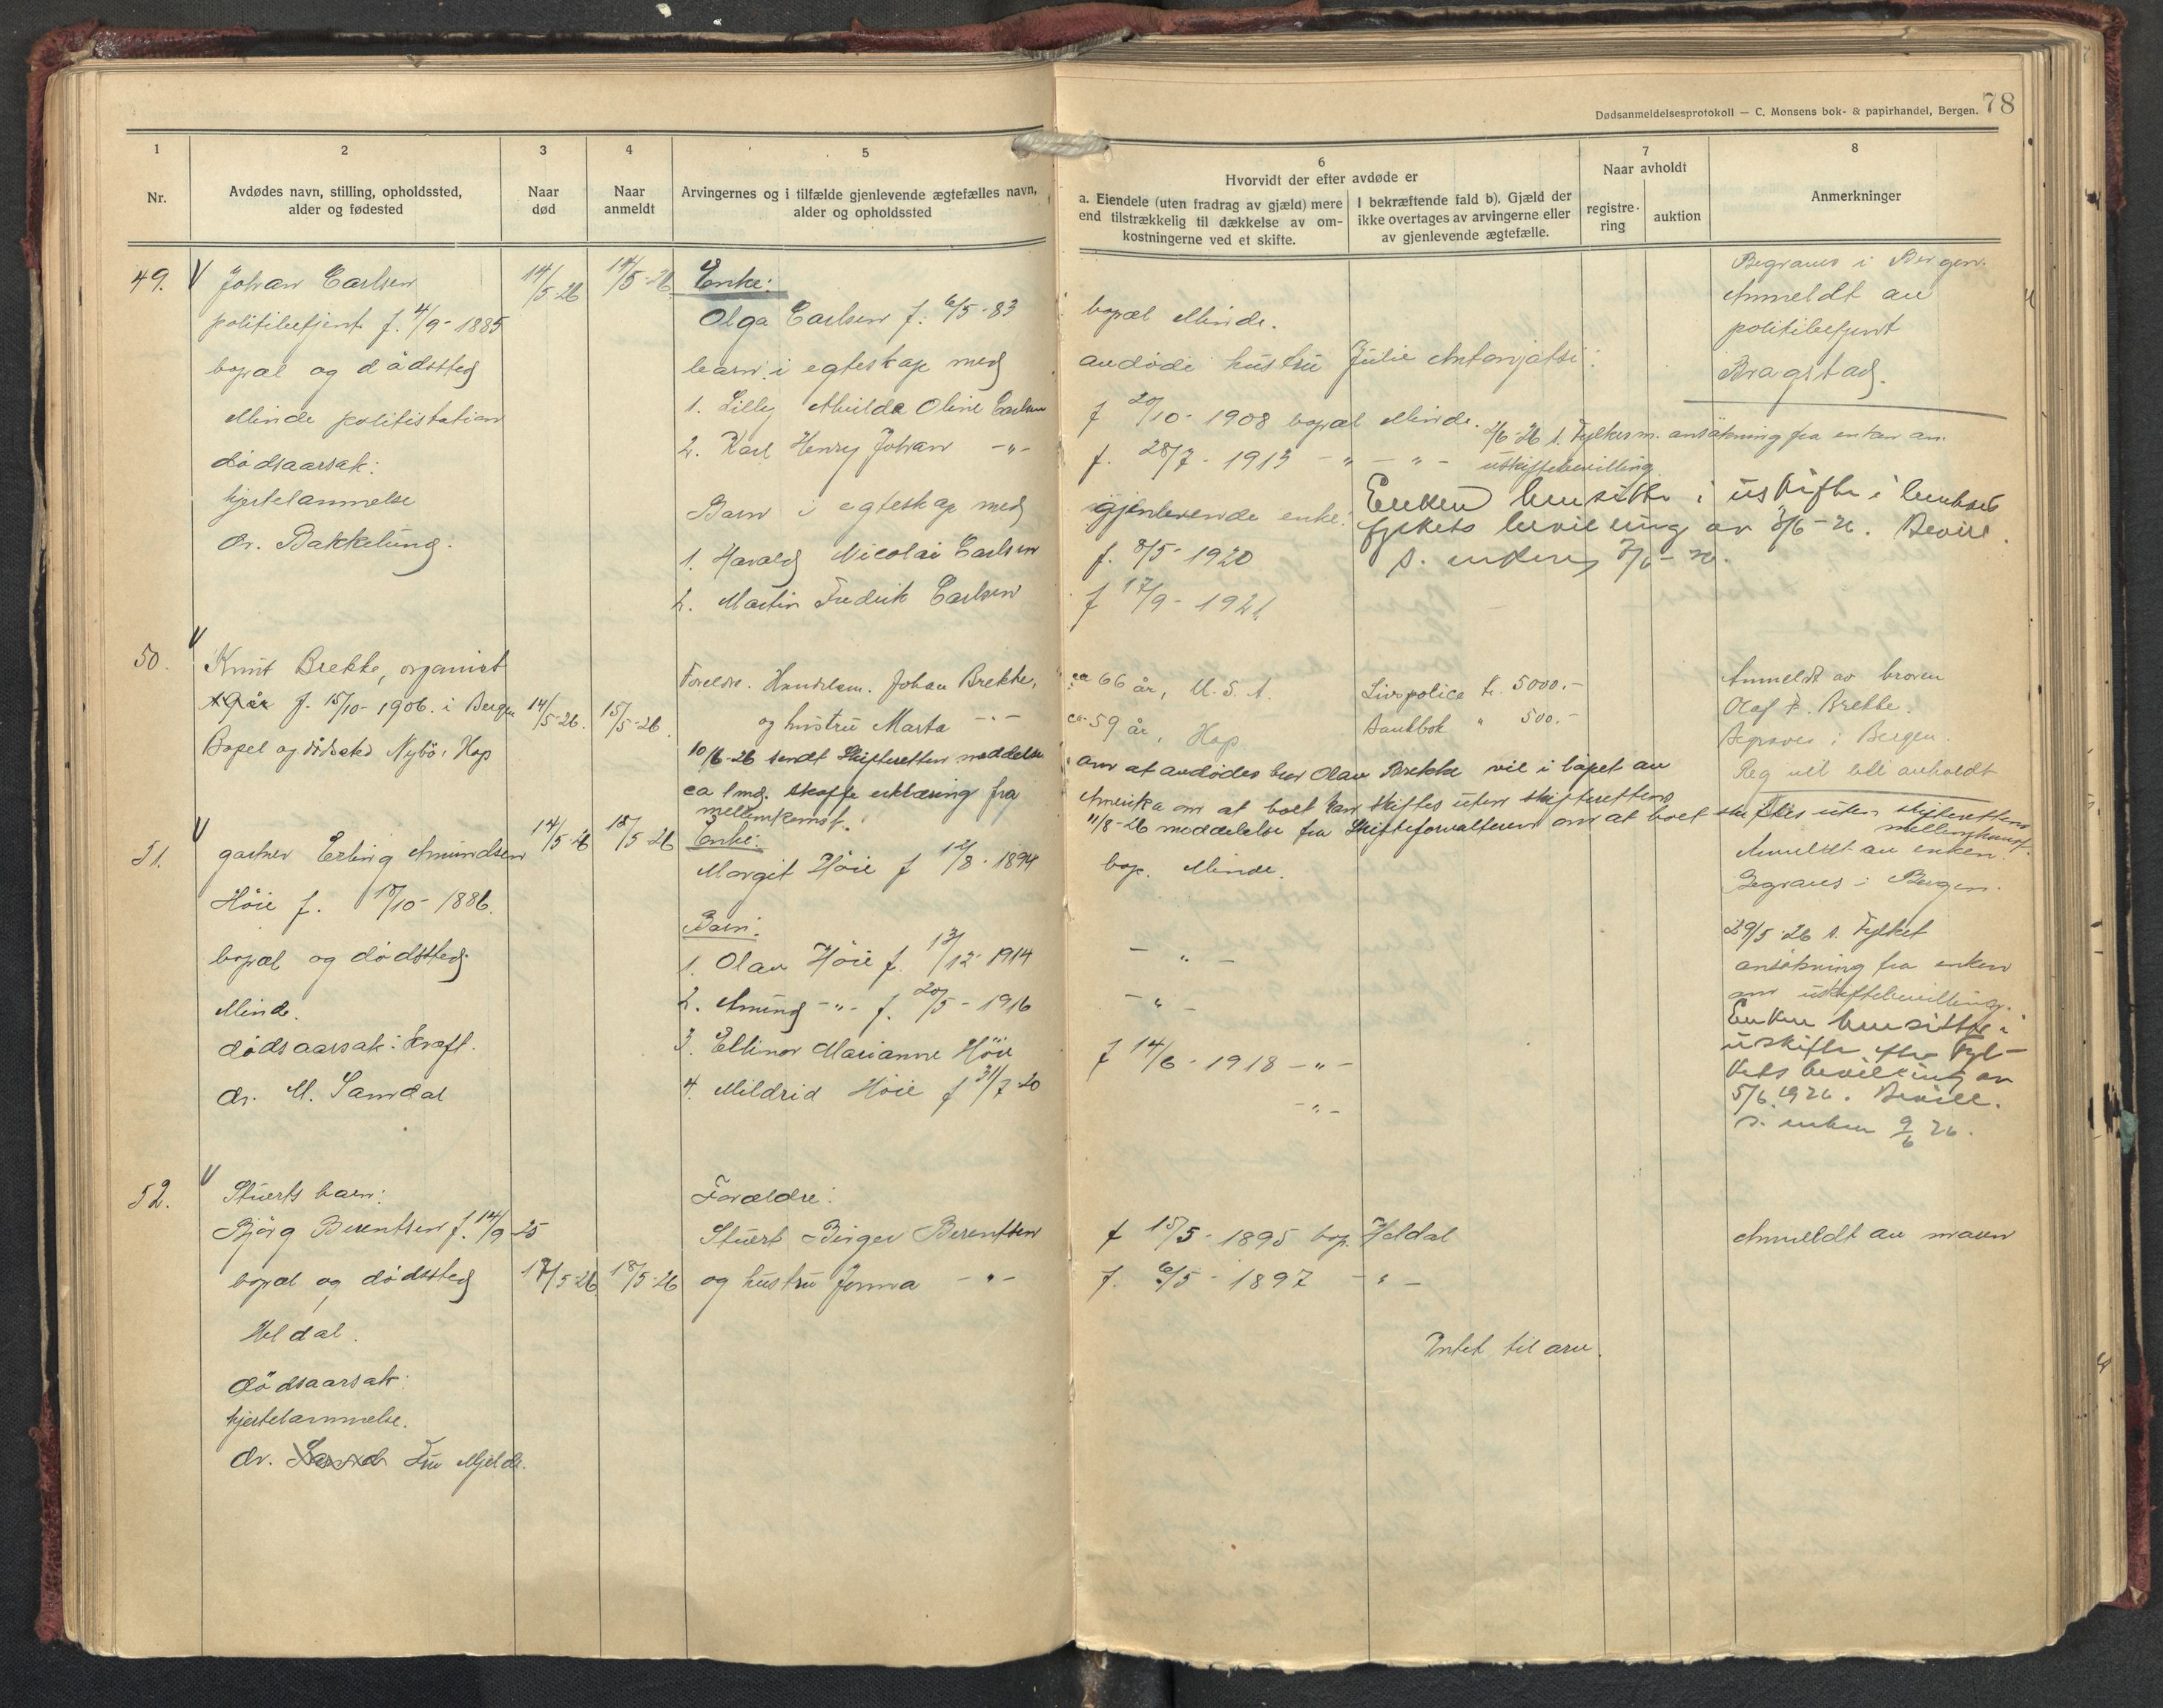 Dødsanmeldelsesprotokoll — C. Monsens bok- & papirhandel, Bergen. 78
1
Nr.
2
Avdødes navn, stilling, opholdssted,
alder og fødested
3
Naar
død
4
Naar
anmeldt
5
Arvingernes og i tilfælde gjenlevende ægtefælles navn,
alder og opholdssted
6
Hvorvidt der efter avdøde er
a. Eiendele (uten fradrag av gjæld) mere
end tilstrækkelig til dækkelse av om-
kostningerne ved et skifte.
I bekræftende fald b). Gjæld der
ikke overtages av arvingerne eller
av gjenlevende ægtefælle.
7
Naar avholdt
registre-
ring
auktion
8
Anmerkninger
49.
Johan Carlsen
politibetjent f. 4/9- 1885
bopæl og dödssted
Minde politistation
dödsaarsak:
hjertelammelse
dr. Bakkelung.
14/5-26
14/5-26
Enke:
Olga Carlsen f. 6/5-83
bopæl Minde.
barn i egteskap med
avdöde hustru Julie
1. Lilly Mulda Oline Carlsen
f 20/10- 1908 bopæl Minde.
2. Karl Henry Johan -"-
f. 28/7- 1913 -"-"-
Barn i egteskap med
gjenlevende enke:
1. Harald Nicolai Carlsen
f. 8/5- 1920
2. Martin Fredrik Carlsen
f 17/9- 1921
2/6-26 s. Fylkesm. ansökning fra enken om
uskiftebevilling.
Enken hensitter i uskifte i henhold
fylkets bevilling av 3/6-26. Bevill.
s. enken 7/6-26.
Begraves i Bergen.
Anmeldt av
politibetjent
Bragstad.
50.
Knut Brekke, organist
19 år f. 15/10- 1906. i Bergen
Bopel og dödssted Nybö, Hop
14/5-26.
15/5-26.
Foreldre. Handelsm. Johan Brekke,
ca 66 år, U.S.A.
og hustru Marta -"-
ca 59 år, Hop
Livspolice kr. 5000.-
Bankbok " 500.-
10/6-26 sendt Skifteretten meddelelse
om at avdödes bror Olav Brekke vil i löpet av
ca 1 md. skaffe erklæring fra
Amerika om at boet kan skiftes uten skifterettens
mellemkomst.
11/8-26 meddelelse fra Skifteforvalteren om at boet skiftes uten skifterettens
mellemkomst.
Anmeldt av broren
Olaf Brekke.
Begraves i Bergen.
Reg vil bli avholdt
51.
gartner Erling Amundsen
Höie f. 18/10- 1886.
bopæl og dödssted
Minde.
dödsaarsak: Kræft.
dr. M. Samdal
14/5-26
15/5-26
Enke:
Margit Höie f 12/8-1894
bop. Minde.
Barn:
1. Olav Höie f. 13/12-1914
- " -
2. Amund -"- f. 20/5-1916
- " -
3. Ellinor Marianne Höie
f 14/6- 1918 -"-
4. Mildrid Höie f 31/7-20
-"-
Anmeldt av enken.
Begraves i Bergen.
29/5-26 s. Fylket
ansökning fra enken
om uskiftebevilling.
Enken hensitter i
uskifte efter Fyl-
kets bevilling av
5/6.1926. Bevill.
s. enken 9/6 26.
52.
Stuerts barn:
Björg Berentsen f. 14/9-25
bopæl og dödssted
Heldal.
dödsaarsak:
hjertelammelse.
dr. Fru Mjelde.
17/5-26
18/5-26
Forældre:
Stuert Birger Berentsen
f 15/5- 1895 bop. Heldal
og hustru Jenna -"-
f. 6/5- 1897 -"-
Intet til arv.
Anmeldt av moren